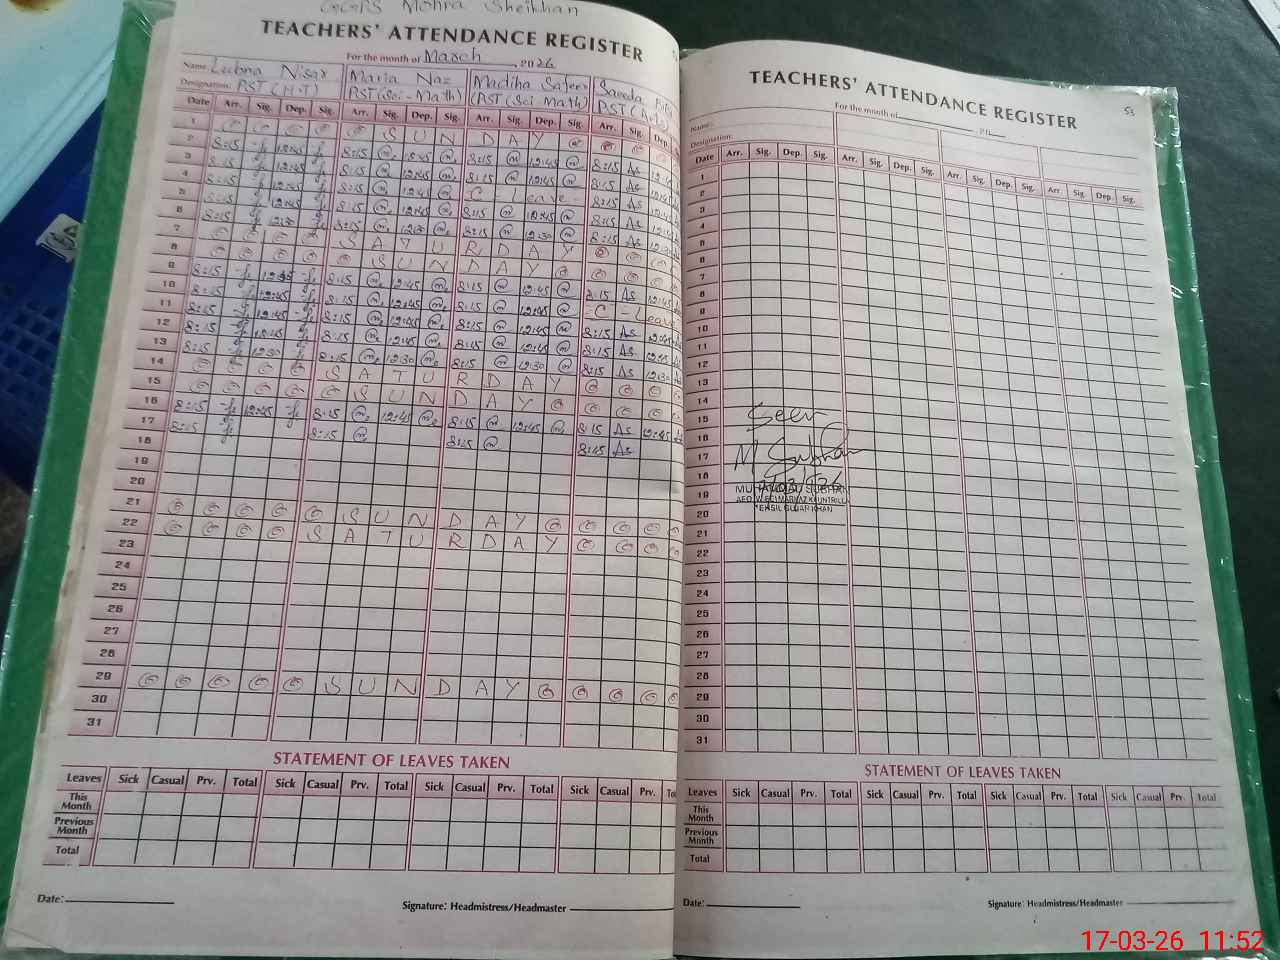 GGPS Mohra Sheikhan
TEACHERS' ATTENDANCE REGISTER
For the month of March 2026
Name: Lubna Nisar Maria Naz Madiha Safeer Saeeda
Designation: PST (H.T) PST (Sci-Math) PST (Sci Math) PST (Arts)
Date Arr. Sig. Dep. Sig. Arr. Sig. Dep. Sig. Arr. Sig. Dep. Sig. Arr. Sig. Dep.
1 SUNDAY
2 8:15 12:45 8:15 12:45 8:15 12:45 8:15 As
3 8:15 12:45 8:15 12:45 8:15 12:45 8:15 As
4 8:15 12:45 8:15 12:45 C - Leave 8:15 As
5 8:15 12:45 8:15 12:45 8:15 12:45 8:15 As
6 8:15 12:30 8:15 12:30 8:15 12:30 8:15 As 12:30
7 SATURDAY
8 SUNDAY
9 8:15 12:45 8:15 12:45 8:15 12:45 8:15 As 12:45
10 8:15 12:45 8:15 12:45 8:15 12:45 C - Leave
11 8:15 12:45 8:15 12:45 8:15 12:45 8:15 As 12:45
12 8:15 12:45 8:15 12:45 8:15 12:45 8:15 As 12:45
13 8:15 12:30 8:15 12:30 8:15 12:30 8:15 As 12:30
14 SATURDAY
15 SUNDAY
16 8:15 12:45 8:15 12:45 8:15 12:45 8:15 As 12:45
17 8:15 8:15 8:15 8:15 As
18
19
20
21 SUNDAY
22 SATURDAY
23
24
25
26
27
28
29 SUNDAY
30
31
STATEMENT OF LEAVES TAKEN
Leaves Sick Casual Prv. Total Sick Casual Prv. Total Sick Casual Prv. Total Sick Casual Prv.
This Month
Previous Month
Total
Date:
Signature: Headmistress/Headmaster
53
TEACHERS' ATTENDANCE REGISTER
For the month of
Name:
Designation:
Date Arr. Sig. Dep. Sig. Arr. Sig. Dep. Sig. Arr. Sig. Dep. Sig. Arr. Sig. Dep. Sig.
1
2
3
4
5
6
7
8
9
10
11
12
13
14
15
16
17
18
19
20
21
22
23
24
25
26
27
28
29
30
31
Seen
M Subhan
MUHAMMAD SUBHAN
TEHSIL GUJAR KHAN
STATEMENT OF LEAVES TAKEN
Leaves Sick Casual Prv. Total Sick Casual Prv. Total Sick Casual Prv. Total Sick Casual Prv. Total
This Month
Previous Month
Total
Date:
Signature: Headmistress/Headmaster
17-03-26 11:52